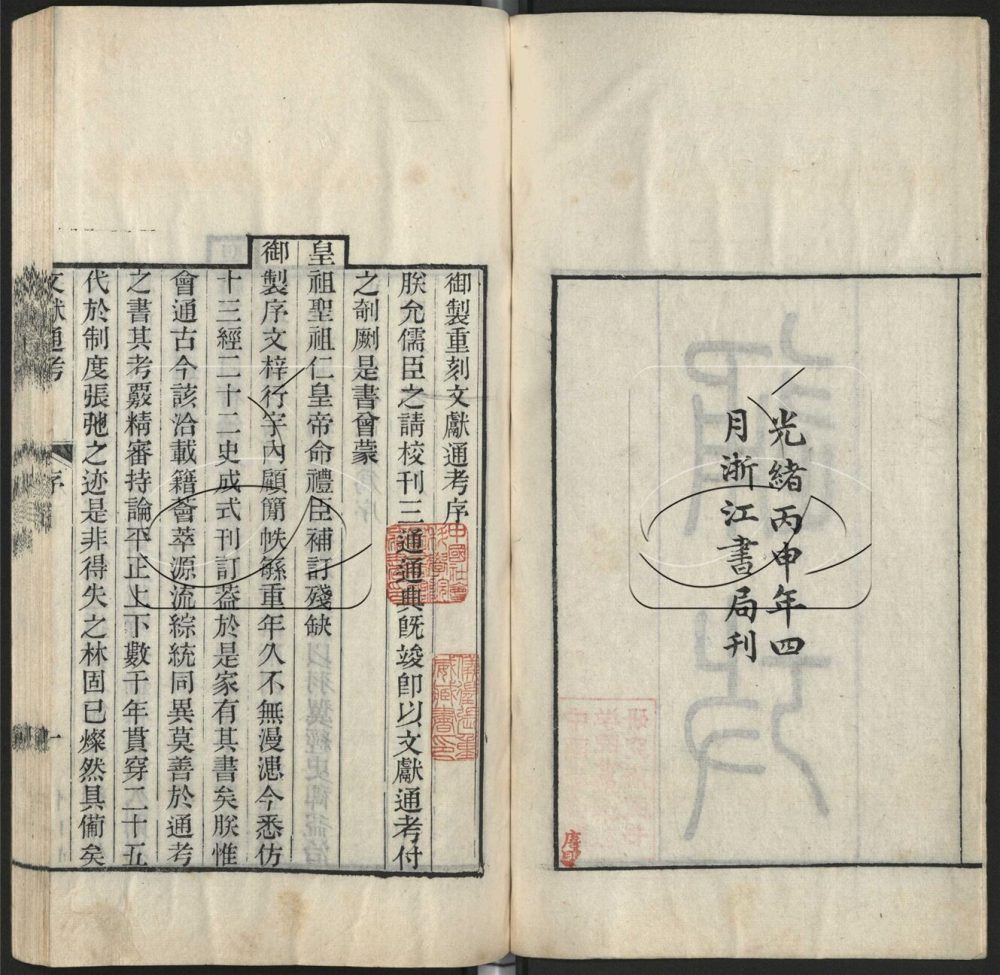 光緒丙申年四
月浙江書局刊
御製重刻文獻通考序
朕允儒臣之請校刊三通通典旣竣卽以文獻通考付
之剞劂是書會蒙
皇祖聖祖仁皇帝命禮臣補訂殘缺
御製序文梓行宇內顧簡帙緐重年久不無漫漶今悉仿
十三經二十二史成式刊訂葢於是家有其書矣朕惟
會通古今該洽載籍薈萃源流綜統同異莫善於通考
之書其考覈精審持論平正上下數千年貫穿二十五
代於制度張弛之迹是非得失之林固已燦然具備矣
文獻通考
序
一